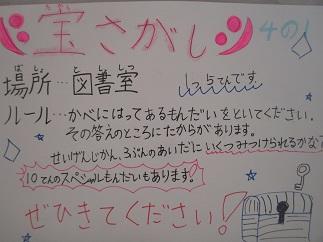 宝さがし 4の1
場所…図書室 1っ5てんです
ルール…かべにはってあるもんだいをといてください。
その答えのところにたからがあります。
せいげんじかん、3ぷんのあいだにいくつみつけられるかな?
10てんのスペシャルもんだいもあります!
ぜひきてください!